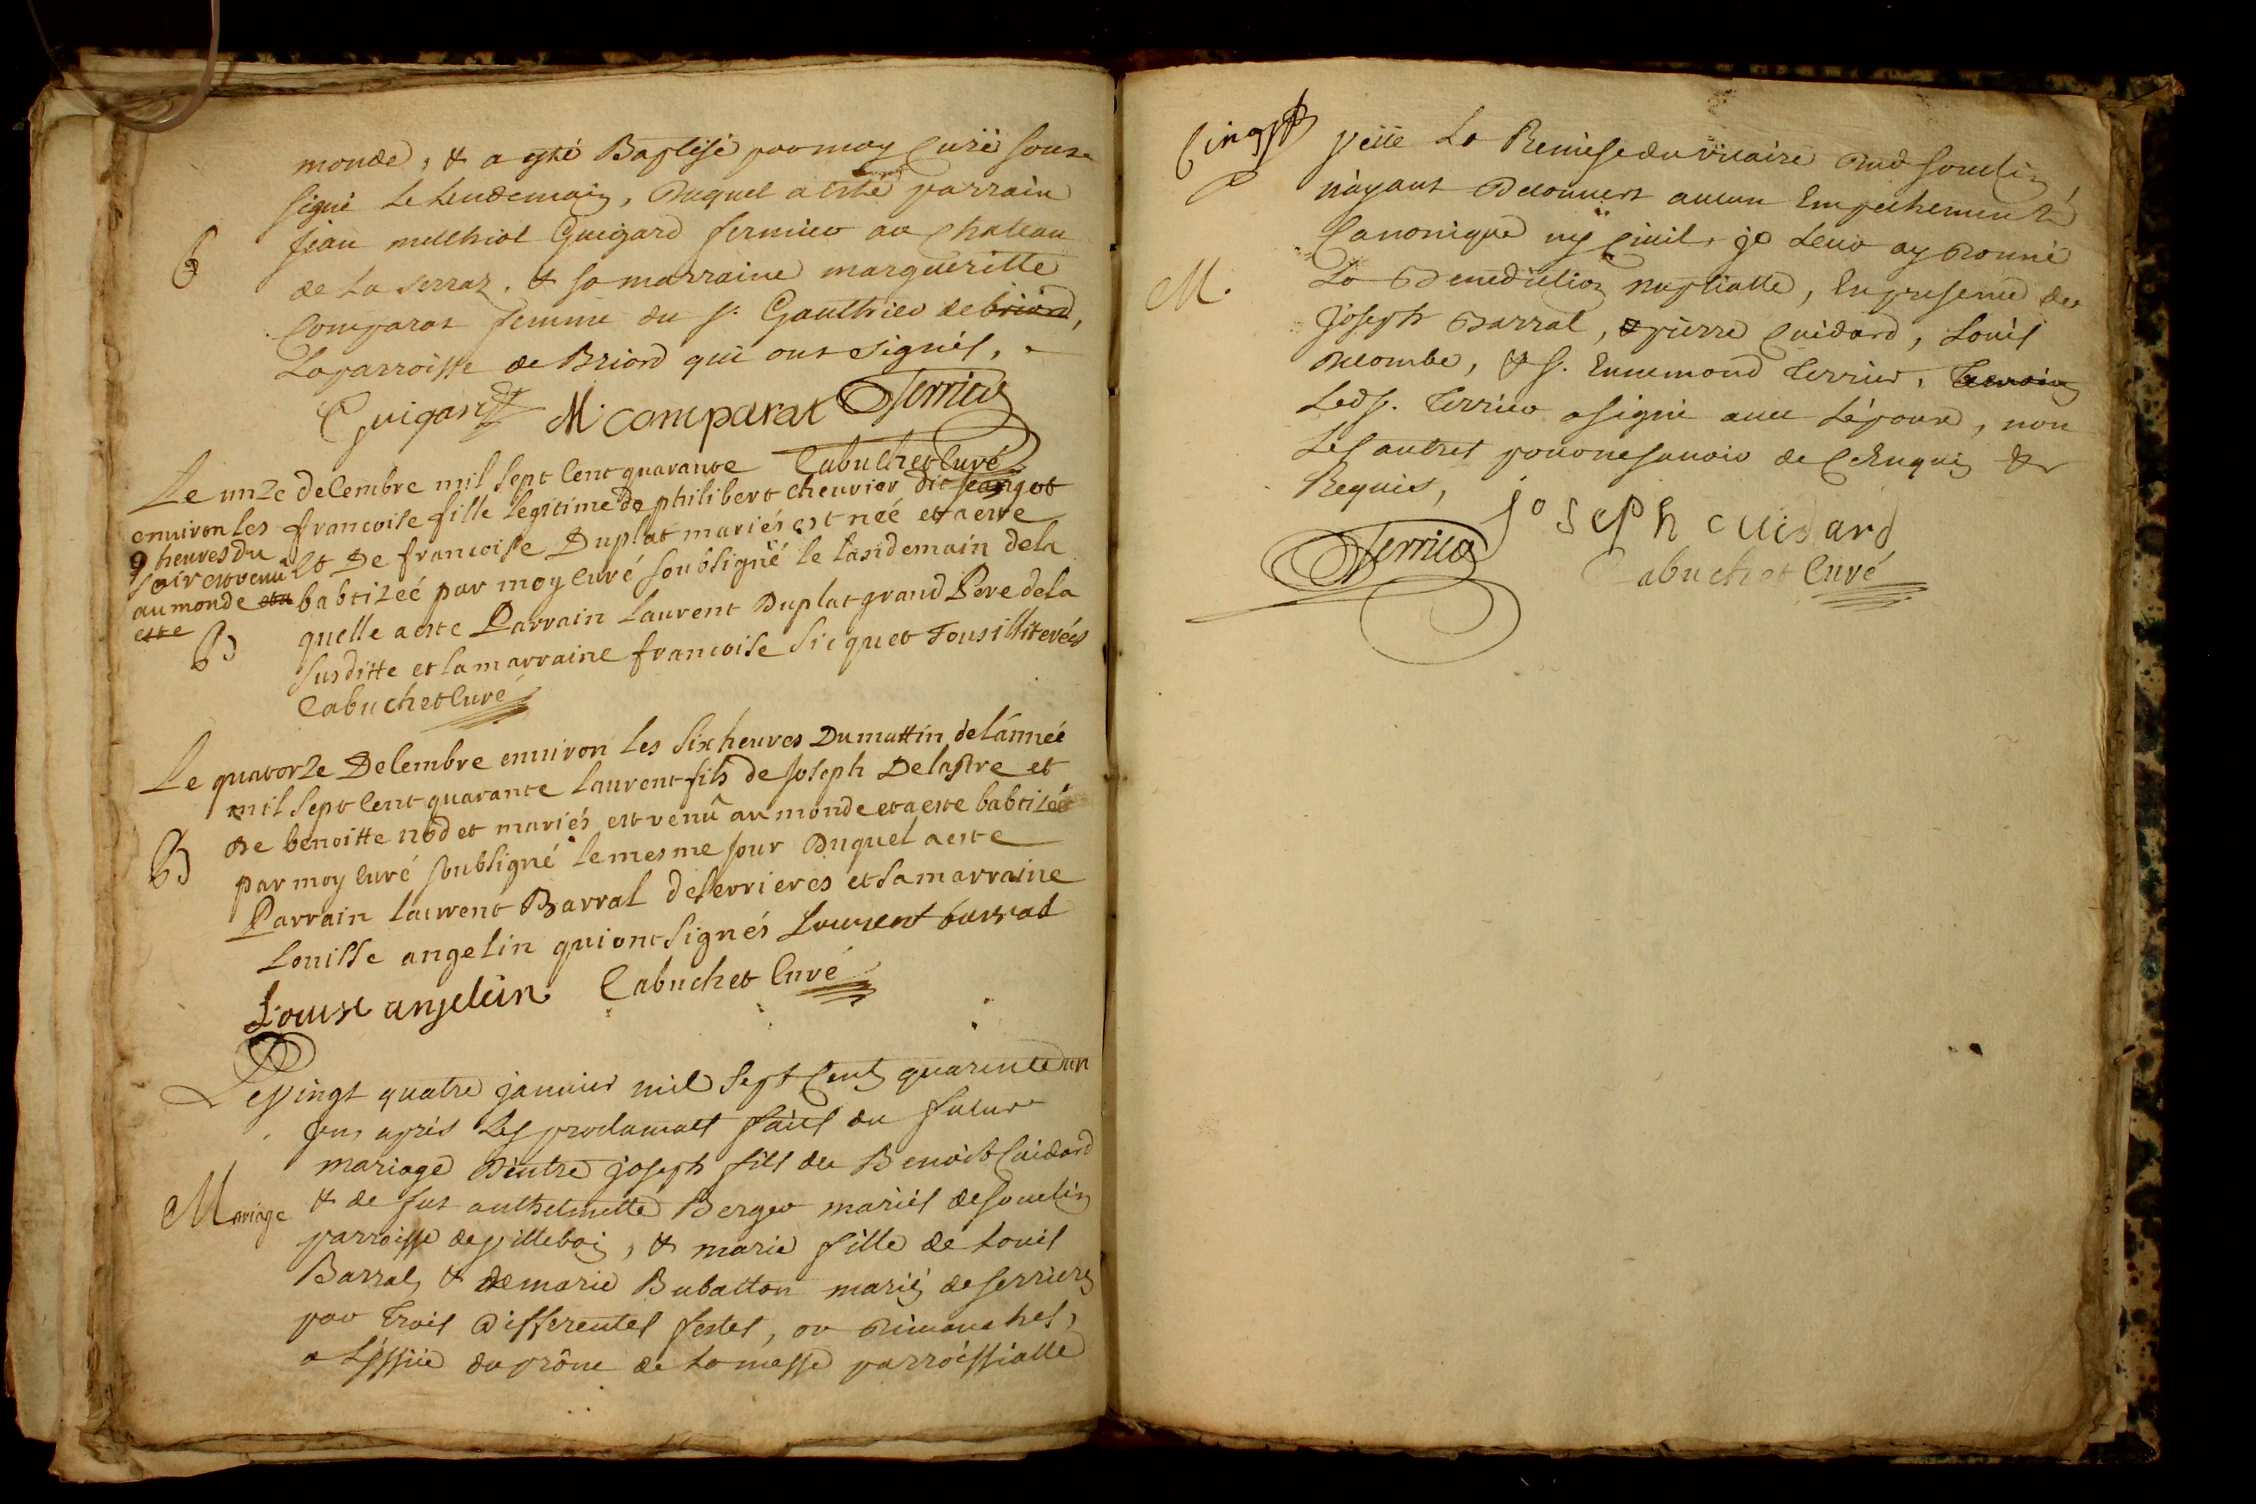 monde, & a esté Baptisé par moy Curé sous
signé le lendemain, Duquel a esté parrain
B
jean melchiol Guigard fermier au chateau
de la serraz. & sa marraine margueritte
Comparat femme du sr. Gauthier de briord,
La parroisse de Briord qui ont signés,
Guigard M comparat Terrier
Cabuchet Curé
Le unze decembre mil sept cent quarante
environ les
9 heures du
soir est venû
au monde eta
este
B
francoise fille legitime de philibert cheurier dit jeangot
et De francoise Duplat mariés est neé et a este
babtizeé par moy curé soubsigné le landemain de la
quelle a este Parrain laurent Duplat grand Pere de la
susditte et la marraine francoise sicquet Tous illiterés
Cabuchet Curé
Le quatorze Decembre environ les six heures Du mattin de lánneé
mil sept cent quarante laurent fils de Joseph Delastre et
B
De benoitte nodet mariés est venû au monde et a este babtizeé
par moy curé soubsigné le mesme jour Duquel a este
Parrain laurent Barral de serrieres et sa marraine
Louisse angelin qui ont signés Laurent barral
Louise anjelin Cabuchet Curé
Le vingt quatre janvier mil sept Cent quarente un
apres les proclamats faits du futur
mariage D'entre joseph fils de Benoist Cuidard
Mariage
& de fut anthelmette Berger mariés de souclin
parroisse de villeboi, & marie fille de Louis
Barral, & de marie Bubatton mariés de serrieres
par trois differentes festes, ou Dimanches,
a L'issüe du prône de la messe parroissialle
Cingpt
veüe La Remise du vicaire Dud souclin,
n'ayant Decouvert aucun Empechement
Canonique ny Civil, je leur ay Donné
M.
La Benediction nuptialle, En presence de
joseph Barral, & pierre Cuidard, Louis
Decombe, & sr. Ennemond Terrier, Temoins
Led sr. Terrier a signé avec L'époux, non
Les autres pour ne savoir de Ce Enquis &
Requis,
joseph cuidard
Terrier
Cabuchet Curé